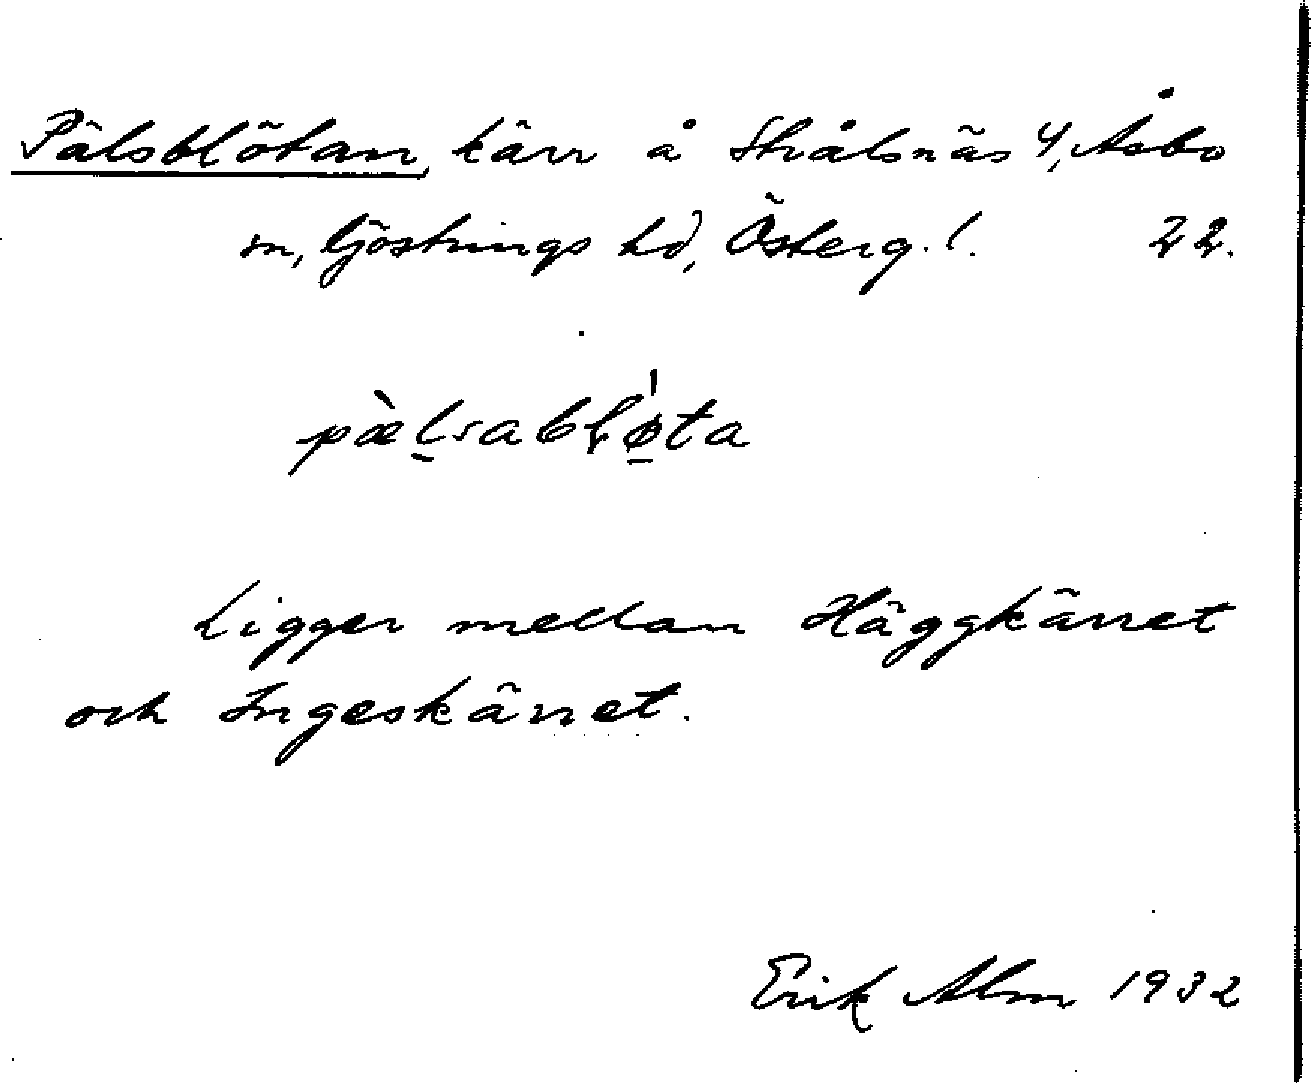 Pälsblötan, kärr å Strålsnäs 4, Åsbo
sn, Göstrings hd, Österg. l. 22.
pæ̀lsabløta
Ligger mellan Häggkärret
och Ingeskärret.
Erik Alm 1932